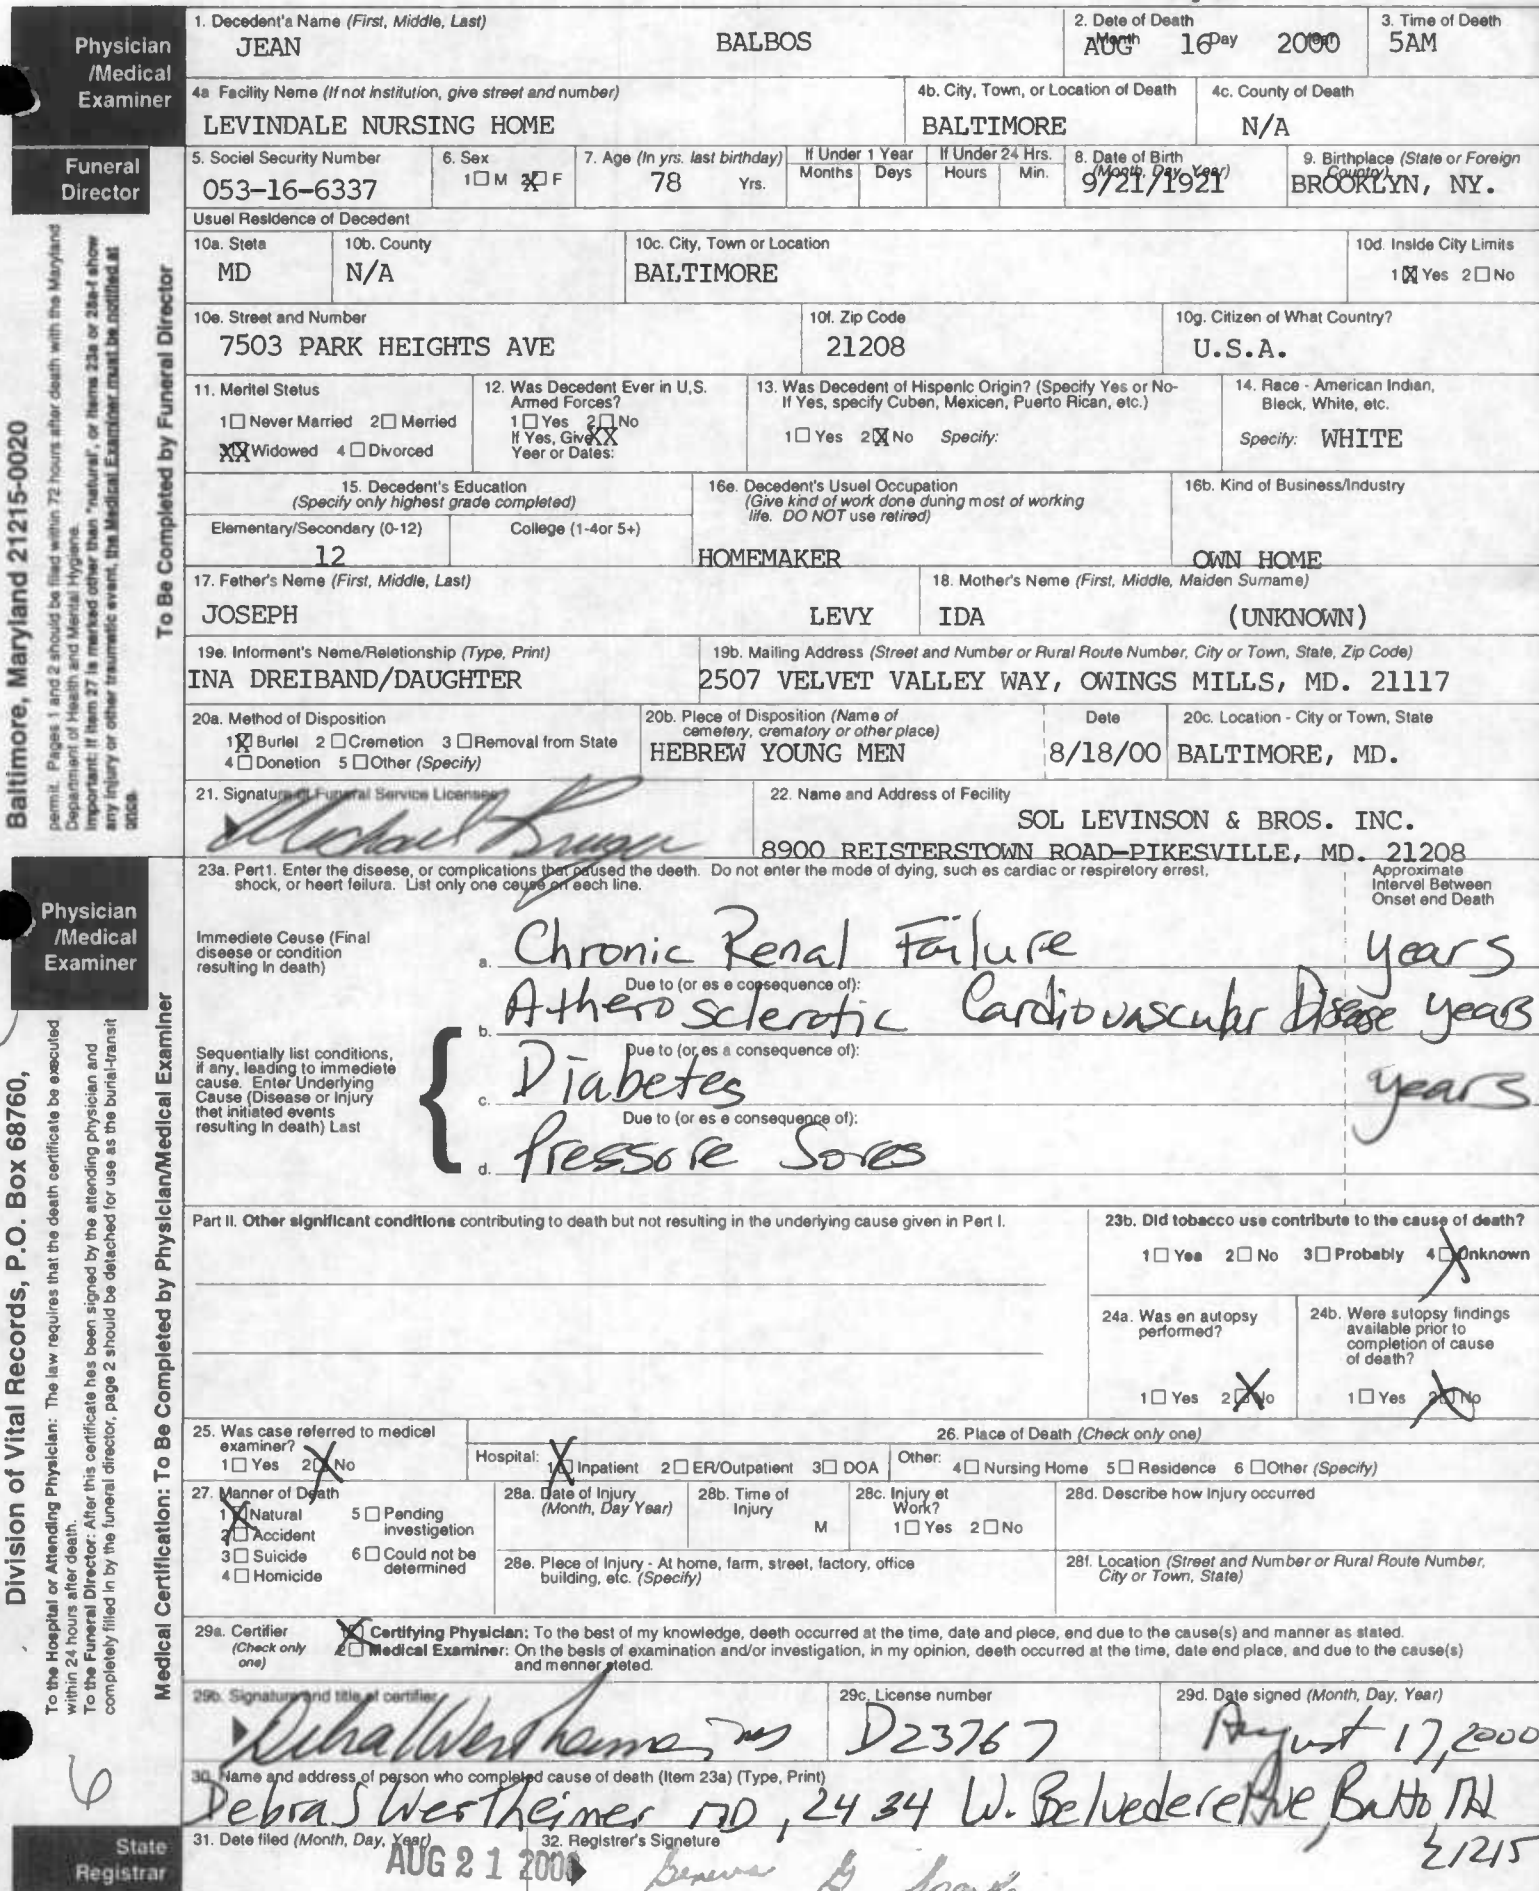 Physician
/Medical
Examiner
1. Decedent's Name (First, Middle, Last)
JEAN BALBOS
2. Date of Death
Month Day Year
AUG 16 2000
3. Time of Death
5AM
4a Facility Name (If not institution, give street and number)
LEVINDALE NURSING HOME
4b. City, Town, or Location of Death
BALTIMORE
4c. County of Death
N/A
Funeral
Director
5. Social Security Number
053-16-6337
6. Sex
1☐ M 2☒ F
7. Age (In yrs. last birthday)
78 Yrs.
If Under 1 Year
Months Days
If Under 24 Hrs.
Hours Min.
8. Date of Birth
(Month, Day, Year)
9/21/1921
9. Birthplace (State or Foreign
Country)
BROOKLYN, NY.
Usual Residence of Decedent
10a. State
MD
10b. County
N/A
10c. City, Town or Location
BALTIMORE
10d. Inside City Limits
1☒ Yes 2☐ No
10e. Street and Number
7503 PARK HEIGHTS AVE
10f. Zip Code
21208
10g. Citizen of What Country?
U.S.A.
11. Marital Status
1☐ Never Married 2☐ Married
XX Widowed 4☐ Divorced
12. Was Decedent Ever in U,S.
Armed Forces?
1☐ Yes 2☐ No
If Yes, Give XX
Year or Dates:
13. Was Decedent of Hispanic Origin? (Specify Yes or No-
If Yes, specify Cuban, Mexican, Puerto Rican, etc.)
1☐ Yes 2☒ No Specify:
14. Race - American Indian,
Black, White, etc.
Specify: WHITE
15. Decedent's Education
(Specify only highest grade completed)
Elementary/Secondary (0-12) College (1-4or 5+)
12
16a. Decedent's Usual Occupation
(Give kind of work done during most of working
life. DO NOT use retired)
HOMEMAKER
16b. Kind of Business/Industry
OWN HOME
17. Father's Name (First, Middle, Last)
JOSEPH LEVY
18. Mother's Name (First, Middle, Maiden Surname)
IDA (UNKNOWN)
19a. Informant's Name/Relationship (Type, Print)
INA DREIBAND/DAUGHTER
19b. Mailing Address (Street and Number or Rural Route Number, City or Town, State, Zip Code)
2507 VELVET VALLEY WAY, OWINGS MILLS, MD. 21117
20a. Method of Disposition
1☒ Burial 2 ☐ Cremation 3 ☐ Removal from State
4☐ Donation 5 ☐ Other (Specify)
20b. Place of Disposition (Name of
cemetery, crematory or other place)
HEBREW YOUNG MEN
Date
8/18/00
20c. Location - City or Town, State
BALTIMORE, MD.
21. Signature of Funeral Service Licensee
22. Name and Address of Facility
SOL LEVINSON & BROS. INC.
8900 REISTERSTOWN ROAD-PIKESVILLE, MD. 21208
To Be Completed by Funeral Director
Baltimore, Maryland 21215-0020
permit. Pages 1 and 2 should be filed within 72 hours after death with the Maryland
Department of Health and Mental Hygiene.
Important: If item 27 is marked other than "natural", or items 23a or 28a-f show
any injury or other traumatic event, the Medical Examiner must be notified at
once.
Physician
/Medical
Examiner
23a. Part1. Enter the disease, or complications that caused the death. Do not enter the mode of dying, such as cardiac or respiratory arrest,
shock, or heart failure. List only one cause on each line.
Approximate
Interval Between
Onset and Death
Immediate Cause (Final
disease or condition
resulting in death)
a. Chronic Renal Failure years
Due to (or as a consequence of):
b. Atherosclerotic Cardiovascular Disease years
Sequentially list conditions,
if any, leading to immediate
cause. Enter Underlying
Cause (Disease or Injury
that initiated events
resulting in death) Last
Due to (or as a consequence of):
c. Diabetes years
Due to (or as a consequence of):
d. Pressore Sores
Part II. Other significant conditions contributing to death but not resulting in the underlying cause given in Part I.
23b. Did tobacco use contribute to the cause of death?
1☐ Yes 2☐ No 3☐ Probably 4☒ Unknown
24a. Was an autopsy
performed?
1☐ Yes 2☒ No
24b. Were autopsy findings
available prior to
completion of cause
of death?
1☐ Yes 2☒ No
25. Was case referred to medical
examiner?
1☐ Yes 2☒ No
26. Place of Death (Check only one)
Hospital: 1☒ Inpatient 2☐ ER/Outpatient 3☐ DOA Other: 4☐ Nursing Home 5☐ Residence 6 ☐ Other (Specify)
27. Manner of Death
1☒ Natural 5☐ Pending
investigation
2☐ Accident
3☐ Suicide 6☐ Could not be
determined
4☐ Homicide
28a. Date of Injury
(Month, Day Year)
28b. Time of
Injury
M
28c. Injury at
Work?
1☐ Yes 2☐ No
28d. Describe how Injury occurred
28e. Place of Injury - At home, farm, street, factory, office
building, etc. (Specify)
28f. Location (Street and Number or Rural Route Number,
City or Town, State)
29a. Certifier
(Check only
one)
1☒ Certifying Physician: To the best of my knowledge, death occurred at the time, date and place, and due to the cause(s) and manner as stated.
2☐ Medical Examiner: On the basis of examination and/or investigation, in my opinion, death occurred at the time, date and place, and due to the cause(s)
and manner stated.
29b. Signature and title of certifier
Debra Wertheimer, MD
29c. License number
D23767
29d. Date signed (Month, Day, Year)
August 17, 2000
30. Name and address of person who completed cause of death (Item 23a) (Type, Print)
Debra S Wertheimer MD, 2434 W. Belvedere Ave, Balto Md
21215
Medical Certification: To Be Completed by Physician/Medical Examiner
Division of Vital Records, P.O. Box 68760,
To the Hospital or Attending Physician: The law requires that the death certificate be executed
within 24 hours after death.
To the Funeral Director: After this certificate has been signed by the attending physician and
completely filled in by the funeral director, page 2 should be detached for use as the burial-transit
6
State
Registrar
31. Date filed (Month, Day, Year)
AUG 21 2000
32. Registrar's Signature